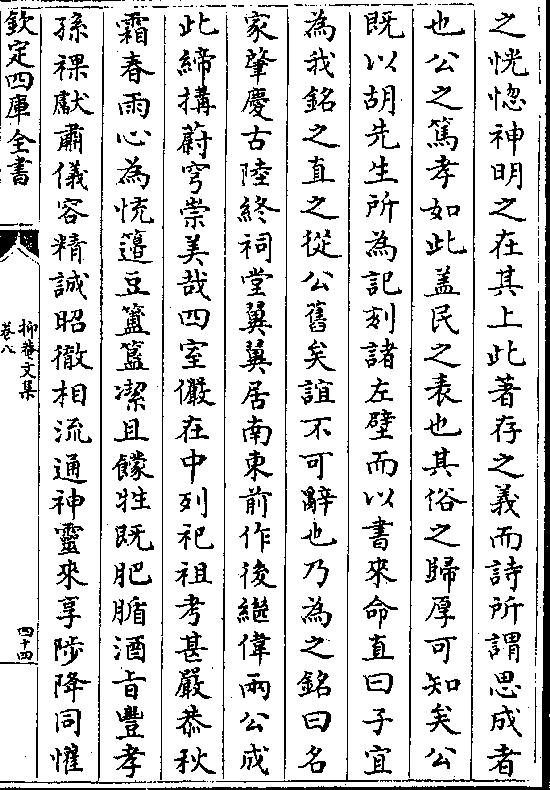 之恍惚神明之在其上此著存之義而詩所謂思成者
也公之篤孝如此盖民之表也其俗之歸厚可知矣公
既以胡先生所為記刻諸左壁而以書來命直曰子宜
為我銘之直之從公舊矣誼不可辭也乃為之銘曰名
家肇慶古陸終祠堂翼翼居南東前作後繼偉兩公成
此締搆蔚穹崇美哉四室儼在中列祀祖考甚嚴恭秋
霜春雨心為忱籩豆簠簋潔且饛牲既肥腯酒旨豐孝
孫祼獻肅儀容精誠昭徹相流通神靈來享陟降同惟
欽定四庫全書
抑菴文集
卷八
四十四